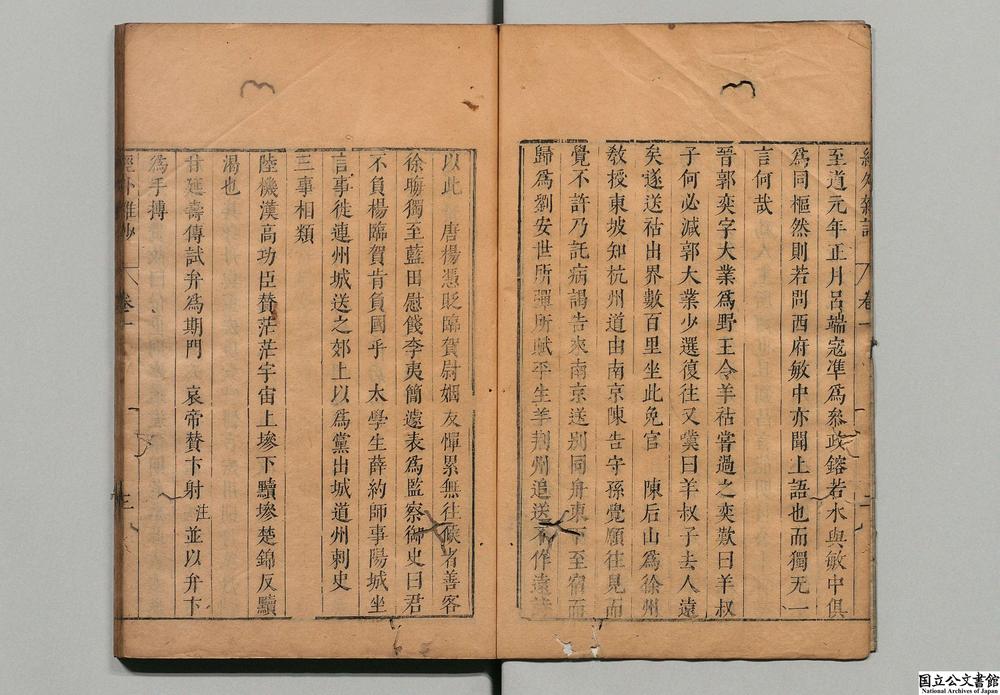 至道元年正月呂端寇準爲參政鎔若水與敏中俱
爲同樞然則若問西府敏中亦聞上語也而獨无一
言何哉
晉郭奕字大業爲野王令羊祜嘗過之奕歎曰羊叔
子何必減郭大業少選復往又歎曰羊叔子去人遠
矣遂送祜出界數百里坐此免官　陳后山爲徐州
敎授東坡知杭州道由南京陳告守孫覺願往見而
覺不許乃託病謁告來南京送別同舟東下至宿而
歸爲劉安世所彈所賦平生羊荆州追送不作遠
以此　唐楊憑貶臨賀尉姻友憚累無往候者善客
徐晦獨至藍田慰餞李夷簡遽表爲監察御史曰君
不負楊臨賀肯負國乎　太學生薛約師事陽城坐
言事徙連州城送之郊上以爲黨出城道州刺史
三事相類
陸機漢高功臣贊茫茫宇宙上墋下黷墋楚錦反黷
濁也
甘延壽傳試弁爲期門　哀帝贊卞射注並以弁卞
爲手搏
經外雜鈔　卷一　三
国立公文書館
National Archives of Japan